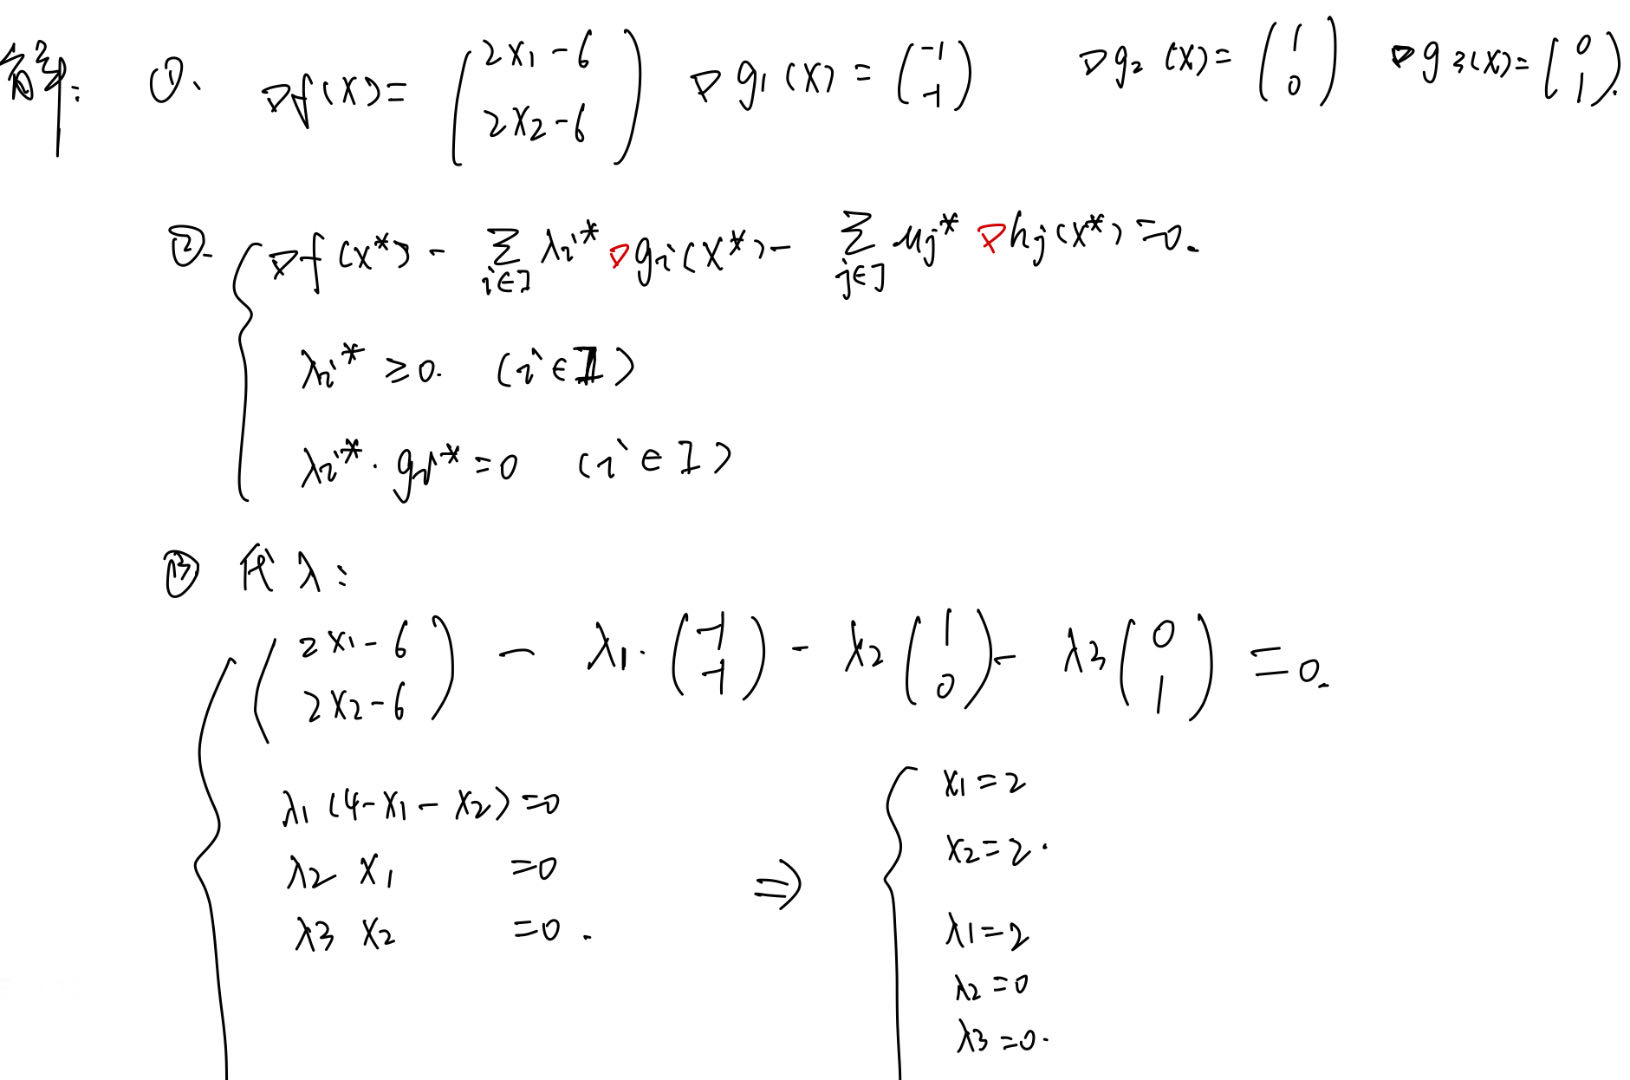 解: ①. ∇f(x)= (2x₁-6 2x₂-6) ∇g₁(x)= (-1 -1) ∇g₂(x)= (1 0) ∇g₃(x)= (0 1).
②. ∇f(x*) - ∑i∈I λi* ∇gi(x*) - ∑j∈J μj* ∇hj(x*) =0.
λi* ≥0. (i∈I)
λi*·gi* =0 (i∈I)
③ 代λ:
(2x₁-6 2x₂-6) - λ₁·(-1 -1) - λ₂(1 0) - λ₃(0 1) =0.
λ₁(4-x₁-x₂)=0
λ₂ x₁ =0
λ₃ x₂ =0.
⇒
x₁=2
x₂=2.
λ₁=2
λ₂=0
λ₃=0.